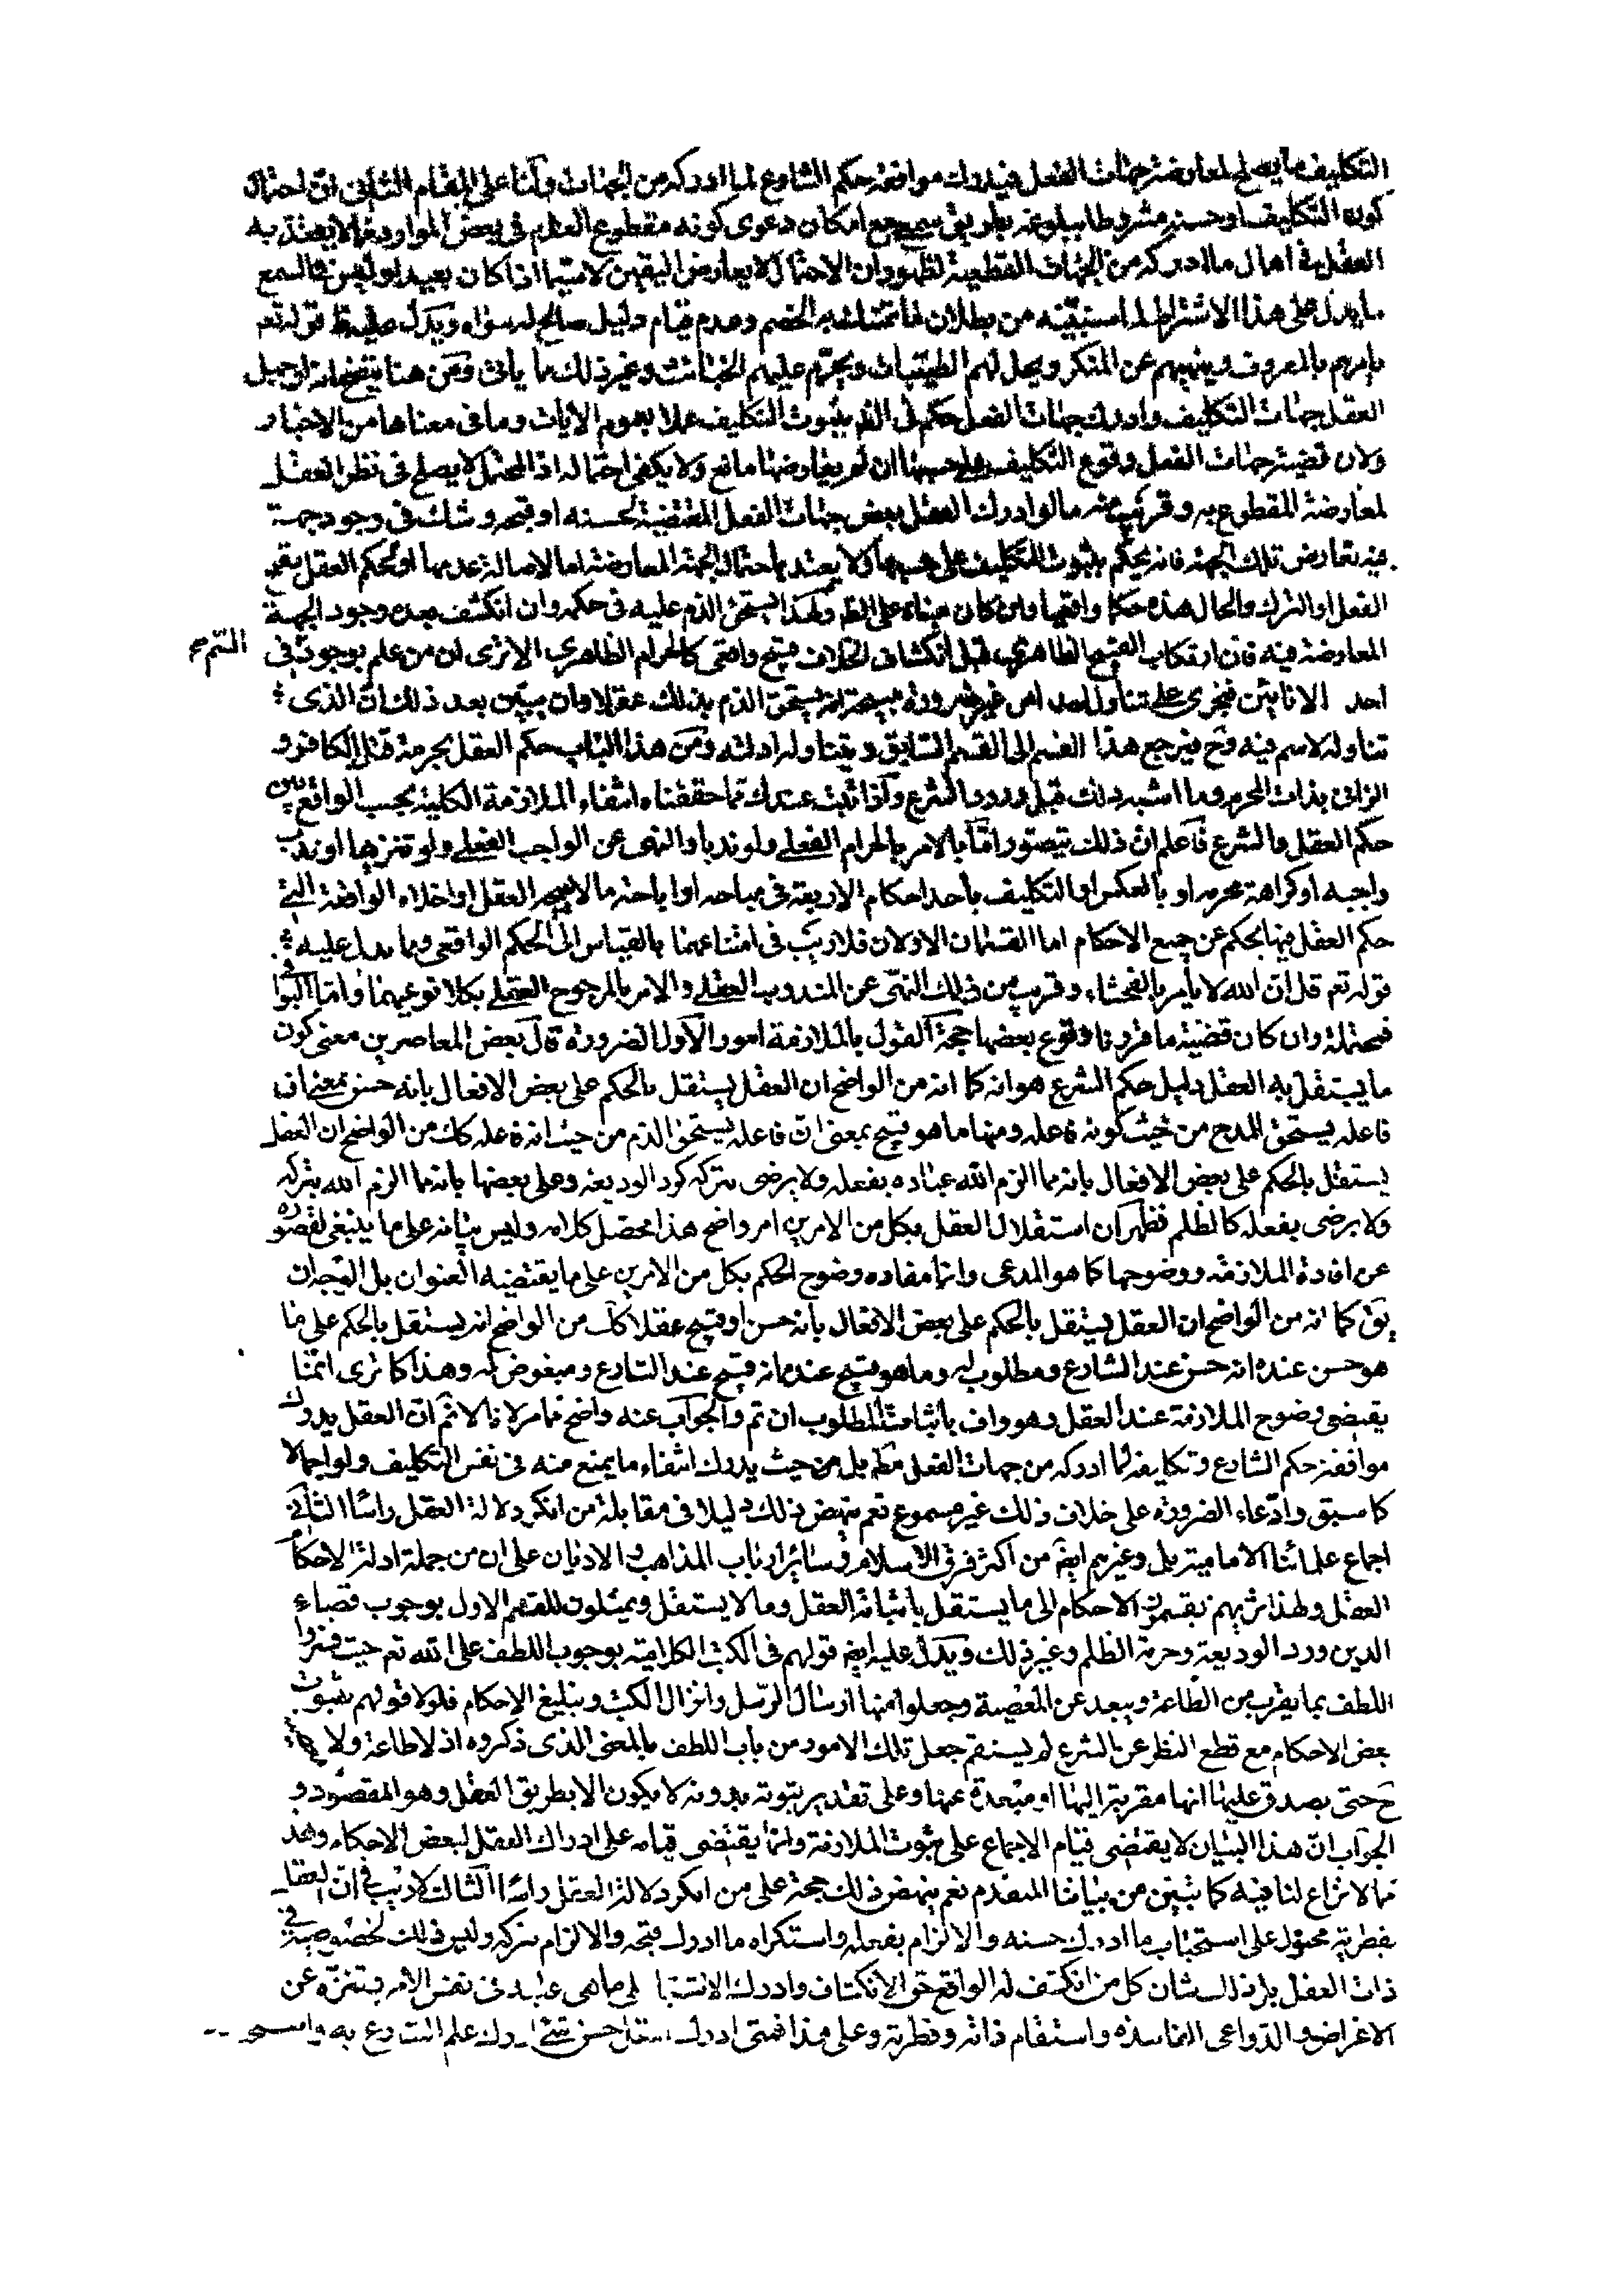 التكليف ما يصلح لمعارضة جهات الفعل فيدرك موافقة حكم الشارع لما ادركه من الجهات ولنا على المقام الثانى ان احتمال
كون التكليف او حسنه مشروطا ببلوغه بطريق سمعى مع امكان دعوى كونه مقطوع العدم فى بعض الموارد مما لا يعتد به
العقل فى اهمال ما ادركه من الجهات القطعية لظهور ان الاحتمال لا يعارض اليقين لا سيما اذا كان بعيدا وليس فى السمع
ما يدل على هذا الاشتراط لما سنبينه من بطلان ما تمسك به الخصم وعدم قيام دليل صالح له سواه ويدل عليه قوله تعم
يامرهم بالمعروف وينهيهم عن المنكر ويحل لهم الطيبات ويحرم عليهم الخبائث وغير ذلك مما ياتى ومن هنا يتضح انه لو جهل
العقل جهات التكليف وادرك جهات الفعل حكم فى الظ بثبوت التكليف عملا بعموم الايات وما فى معناها من الاخبار
ولان قضية جهات الفعل وقوع التكليف على حسبها ان لم يعارضها مانع ولا يكفى احتماله اذ المحتمل لا يصلح فى نظر العقل
لمعارضة المقطوع به وقريب منه ما لو ادرك العقل بعض جهات الفعل المقتضية لحسنه او قبحه وشك فى وجود جهة
فيه تعارض تلك الجهة فانه يحكم بثبوت التكليف على حسبها ولا يعتد باحتمال الجهة المعارضة اما لاصالة عدمها او لحكم العقل بقبح
الفعل او الترك والحال هذه حكما واقعيا وان كان مبناه على الظ ولهذا يستحق الذم عليه فى حكمه وان انكشف بعده وجود الجهة
المعارضة فيه فان ارتكاب القبيح الظاهرى قبل انكشاف الخلاف قبيح واقعى كالحرام الظاهرى الا ترى ان من علم بوجود فى السّم
احد الانائين فتجرى على تناول احدهما من غير ضرورة مبيحة انه يستحق الذم بذلك عقلا وان تبين بعد ذلك ان الذى
تناوله لا سم فيه وح فيرجع هذا القسم الى القسم السابق ويتناوله ادلته ومن هذا الباب حكم العقل بحرمة قتل الكافر و
الزانى بذات المحرم وما اشبه ذلك قبل ورود الشرع واذا ثبت عندك مما حققناه انتفاء الملازمة الكلية بحسب الواقع بين
حكم العقل والشرع فاعلم ان ذلك يتصور اما بالامر بالحرام الفعلى ولو ندبا والنهى عن الواجب الفعلى ولو تنزيها او ندب
واجبه او كراهة محرمه او بالعكس او التكليف باحد احكام الاربعة فى مباحه او اباحة ما لا يبيحه العقل او اخلاء الواقعة التى
حكم العقل فيها بحكم عن جميع الاحكام اما القسمان الاولان فلا ريب فى امتناعهما بالقياس الى الحكم الواقعى ومما يدل عليه
قوله تعم قل ان الله لا يأمر بالفحشاء وقريب من ذلك النهى عن المندوب العقلى والامر بالمرجوح العقلى بكلا نوعيهما واما البواقى
فمحتملة وان كان قضية ما قررنا وقوع بعضها حجة القول بالملازمة امور الاول الضرورة قال بعض المعاصرين معنى كون
ما يستقل به العقل دليل حكم الشرع هو انه كما انه من الواضح ان العقل يستقل بالحكم على بعض الافعال بانه حسن بمعنى ان
فاعله يستحق المدح من حيث كونه فاعله ومنها ما هو قبيح بمعنى ان فاعله يستحق الذم من حيث انه فاعله كك من الواضح ان العقل
يستقل بالحكم على بعض الافعال بانه مما الزم الله عباده بفعله ولا يرضى بتركه كرد الوديعة وعلى بعضها بانه مما الزم الله بتركه
ولا يرضى بفعله كالظلم فظهر ان استقلال العقل بكل من الامرين امر واضح هذا محصل كلامه وليس بيانه على ما ينبغى لقصوره
عن افادة الملازمة ووضوحها كما هو المدعى وانما مفاده وضوح الحكم بكل من الامرين على ما يقتضيه العنوان بل المتجه ان
يق كما انه من الواضح ان العقل يستقل بالحكم على بعض الافعال بانه حسن او قبيح عقلا كك من الواضح انه يستقل بالحكم على ما
هو حسن عنده انه حسن عند الشارع ومطلوب له وما هو قبيح عنده انه قبيح عند الشارع ومبغوض له وهذا كما ترى انما
يقتضى وضوح الملازمة عند العقل وهو واف باثبات المطلوب ان تم والجواب عنه واضح مما مر لانا لا نم ان العقل يدرك
موافقة حكم الشارع وتكليفه لما ادركه من جهات الفعل مطم بل من حيث يدرك انتفاء ما يمنع منه فى نفس التكليف ولو اجمالا
كما سبق وادعاء الضرورة على خلاف ذلك غير مسموع نعم ينهض ذلك دليلا فى مقابلة من انكر دلالة العقل راسا الثانى
اجماع علمائنا الامامية بل وغيرهم ايضا من اكثر فرق الاسلام وسائر ارباب المذاهب والاديان على ان من جملة ادلة الاحكام
العقل ولهذا تريهم يقسمون الاحكام الى ما يستقل باثباته العقل وما لا يستقل ويمثلون للقسم الاول بوجوب قضاء
الدين ورد الوديعة وحرمة الظلم وغير ذلك ويدل عليه ايضا قولهم فى الكتب الكلامية بوجوب اللطف على الله تعم حيث فسروا
اللطف بما يقرب من الطاعة ويبعد عن المعصية وجعلوا منها ارسال الرسل وانزال الكتب وتبليغ الاحكام فلولا قولهم بثبوت
بعض الاحكام مع قطع النظر عن الشرع لم يستقم جعل تلك الامور من باب اللطف بالمعنى الذى ذكروه اذ لا طاعة ولا
ح حتى يصدق عليها انها مقربة اليها او مبعدة عنها وعلى تقدير ثبوته بدونه لا يكون الا بطريق العقل وهو المقصود و
الجواب ان هذا البيان لا يقتضى قيام الاجماع على ثبوت الملازمة وانما يقتضى قيامه على ادراك العقل لبعض الاحكام وهذ
مما لا نزاع لنا فيه كما تبين من بياننا المتقدم نعم ينهض ذلك حجة على من انكر دلالة العقل راسا الثالث لا ريب فى ان العقل
بفطرته مجبول على استحباب ما ادرك حسنه والالزام بفعله واستكراه ما ادرك قبحه والالزام بتركه وليس ذلك لخصوصية فى
ذات العقل بل ذلك شان كل من انكشف له الواقع حق الانكشاف وادرك الاشيا على ما هى عليه فى نفس الامر وتنزه عن
الاغراض والدواعى الفاسدة واستقام ذاته وفطرته وعلى هذا فمتى ادرك حسن شئ ادرك علم الشارع به